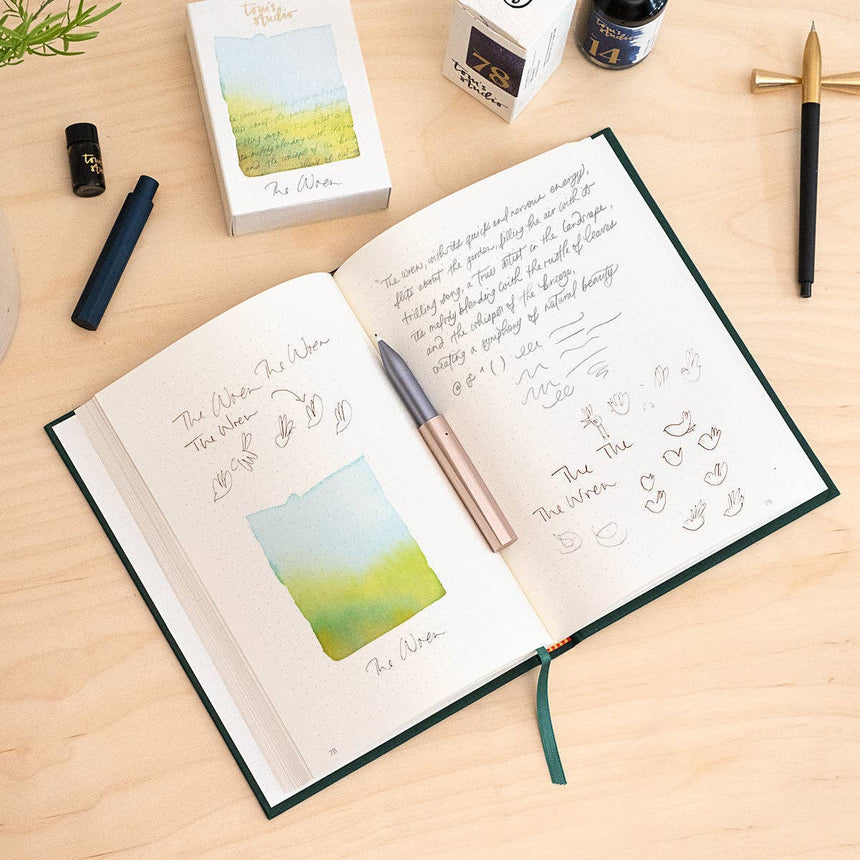 tom's
studio
The Wren
78
tom's
studio
tom's
studio
14
tom's
The Wren The Wren
The Wren
The Wren
78
"The wren, with its quick and nervous energy,
flits about the garden, filling the air with its
trilling song, a true artist in the landscape,
its melody blending with the rustle of leaves
and the whisper of the breeze,
creating a symphony of natural beauty
@ & ^ ( )
The The
The Wren
79